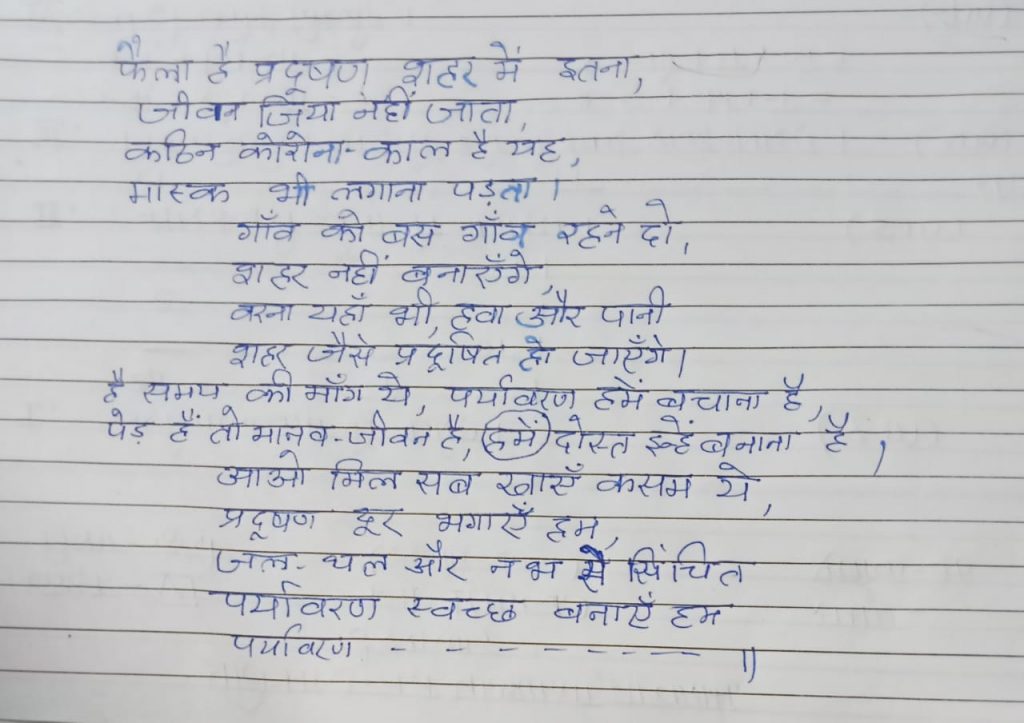 फैला है प्रदूषण शहर में इतना,
जीवन जिया नहीं जाता,
कठिन कोरोना-काल है यह,
मास्क भी लगाना पड़ता।
गाँव को बस गाँव रहने दो,
शहर नहीं बनाएँगे,
वरना यहाँ भी, हवा और पानी
शहर जैसे प्रदूषित हो जाएँगे।
है समय की माँग ये, पर्यावरण हमें बचाना है,
पेड़ हैं तो मानव-जीवन है, हमें दोस्त इन्हें बनाना है,
आओ मिल सब खाएँ कसम ये,
प्रदूषण दूर भगाएँ हम,
जल-थल और नभ से सिंचित
पर्यावरण स्वच्छ बनाएँ हम
पर्यावरण - - - - - - - - ॥